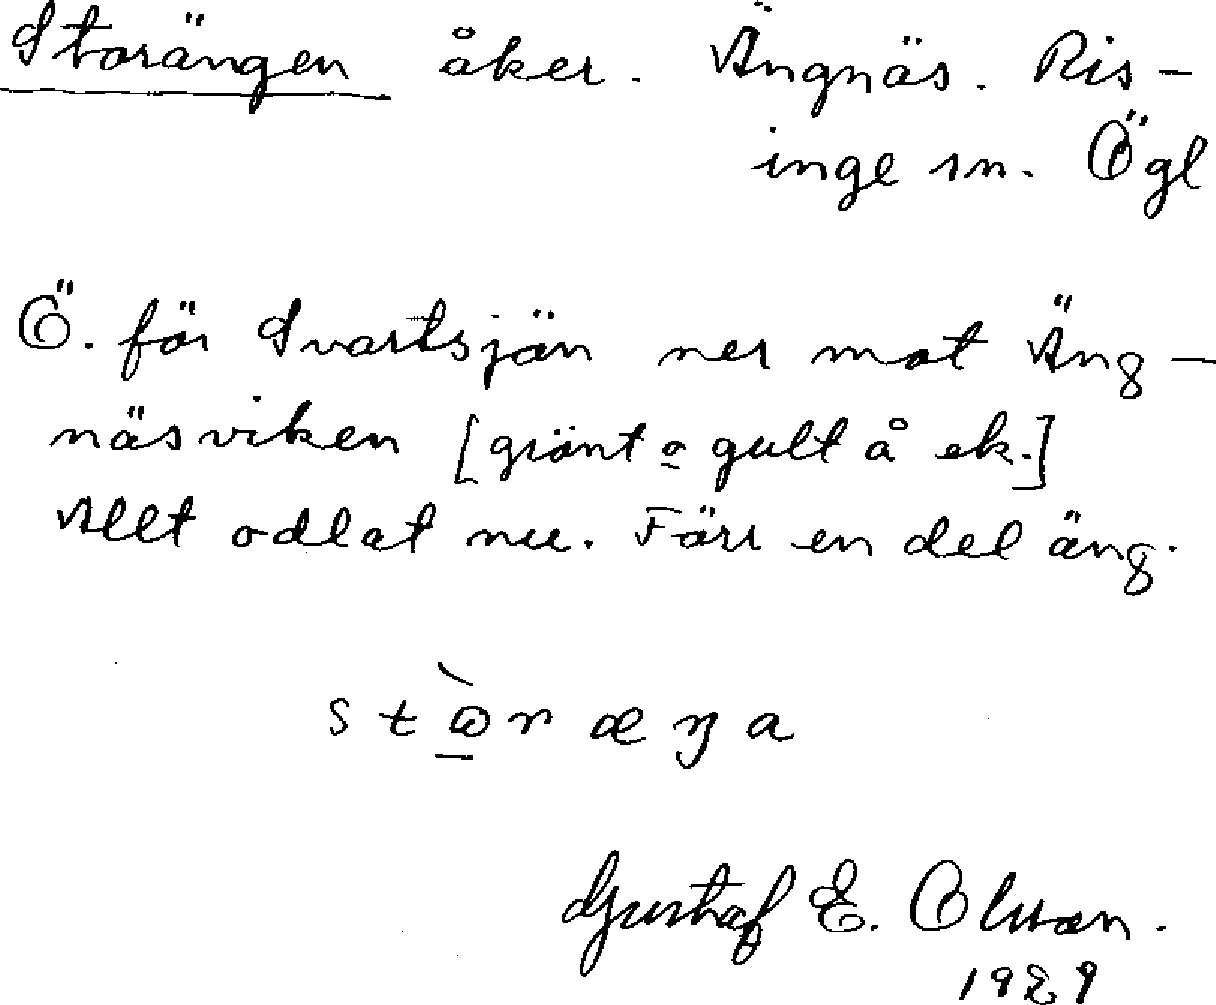 Storängen åker. Ängnäs. Ris-
inge sn. Ögl
Ö. för Svartsjön ner mot Äng-
näsviken [grönt o gult å ek.]
Allt odlat nu. Förr en del äng.
Gustaf E. Olsson.
1929